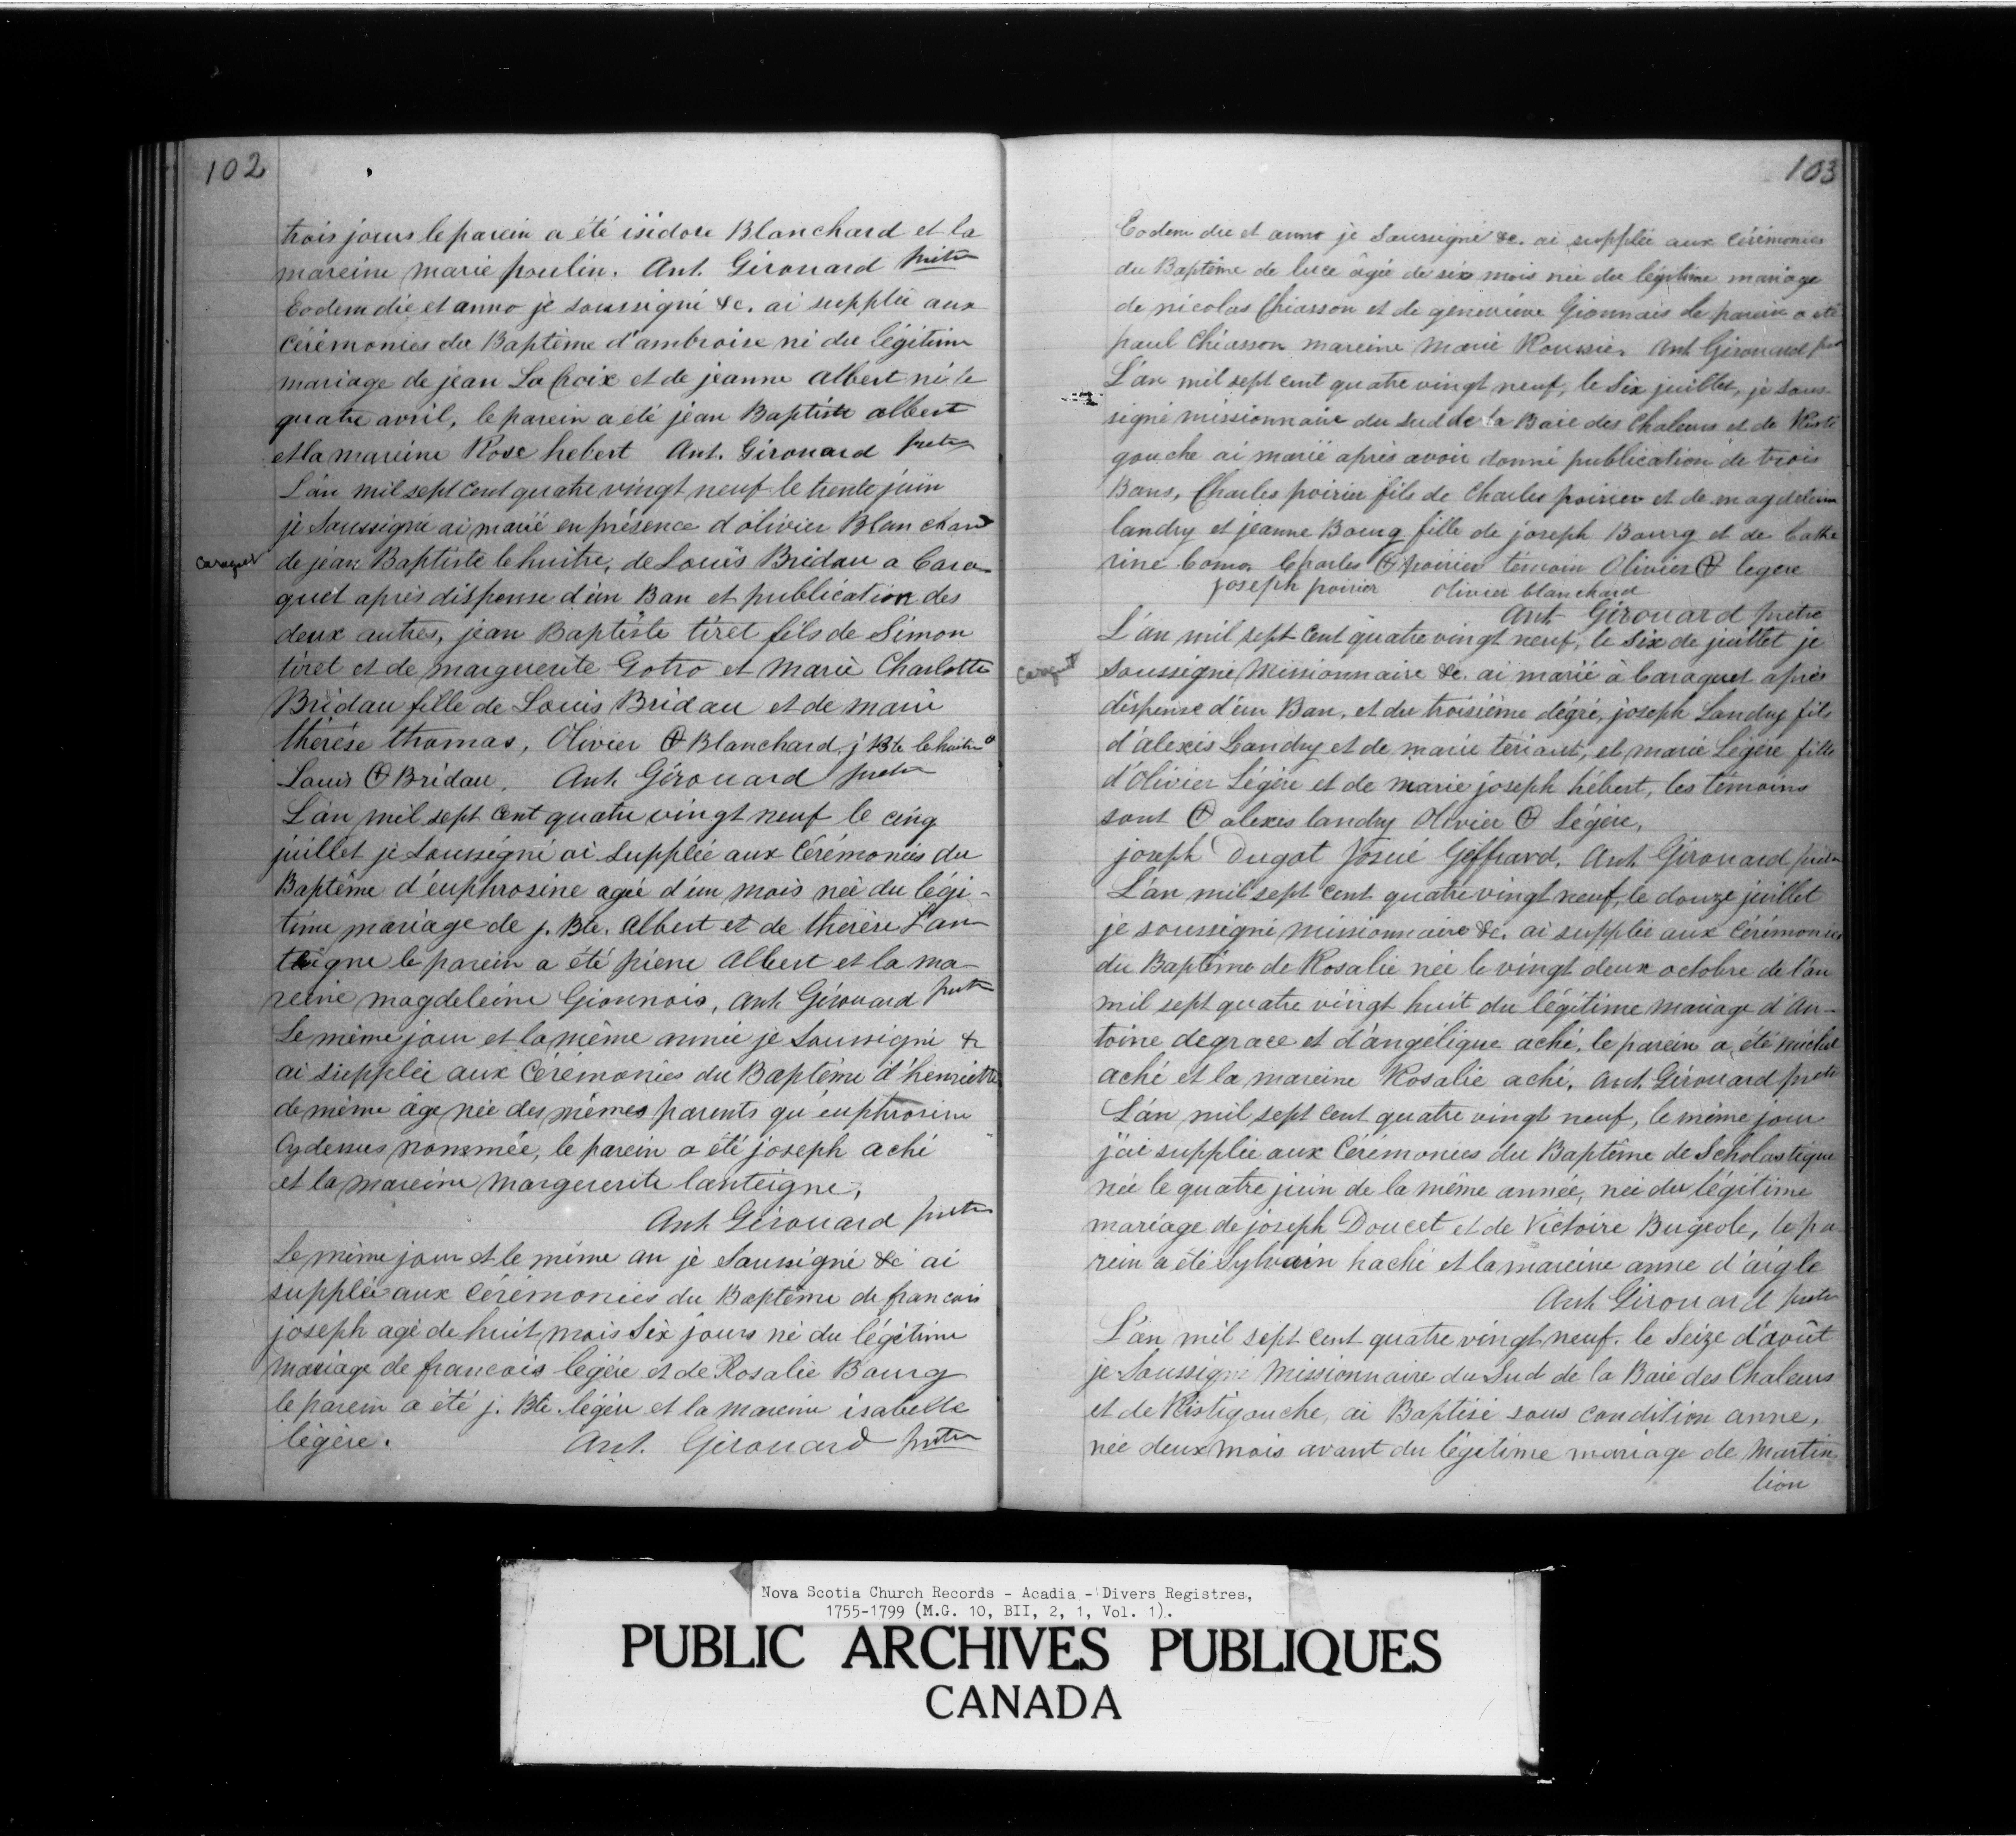 102
trois jours le parein a été isidore Blanchard et la
mareine marie poulin. Ant. Girouard ptre
Eodem die et anno je soussigné &c. ai supplée aux
Cérémonies du Baptême d'ambroise né du légitime
mariage de jean La Croix et de jeanne albert né le
quatre avril, le parein a été jean Baptiste albert
et la mareine Rose hebert Ant. Girouard pretre
L'an mil sept cent quatre vingt neuf le trente juin
je Soussigné ai marié en présence d'olivier Blanchard
Caraquet
de jean Baptiste lehuitre, de Louis Bridau a Cara
quet après dispense d'un Ban et publication des
deux autres, jean Baptiste tiret fils de Simon
tiret et de marguerite Gotro et Marie Charlotte
Bridau fille de Louis Bridau et de marie
thérèse thomas, Olivier ⊕ Blanchard, j Bte lehuitre
Louis ⊕ Bridau. Ant. Girouard pretre
L'an mil sept cent quatre vingt neuf le cinq
juillet je soussigné ai supplée aux Cérémonies du
Baptême d'euphrosine agée d'un mois née du légi-
time mariage de j. Bte. Albert et de thérèse L'an
teigne le parein a été pierre Albert et la ma-
reine magdeleine Gionnois, Ant. Girouard pretre
Le même jour et la même année je Soussigné &
ai supplée aux Cérémonies du Baptême d'henriette
de même âge née des mêmes parents qu'euphrosine
Cydessus nommée, le parein a été joseph aché
et la mareine Marguerite lanteigne,
Ant Girouard pretre
Le même jour et le même an je Soussigné &c ai
supplée aux Cérémonies du Baptême de francois
joseph agé de huit mois Six jours né du légitime
mariage de francois legère et de Rosalie Bourg
le parein a été j. Bte. légère et la mareine isabelle
légère. Ant. Girouard pretre
103
Eodem die et anno je Soussigné &c. ai supplée aux Cérémonies
du Baptême de luce âgée de six mois née du légitime mariage
de nicolas Chiasson et de genevieve Gionnais le parein a été
paul Chiasson mareine Marie Roussie. Ant Girouard ptre
L'an mil sept cent quatre vingt neuf, le Six juillet, je Sous
signé missionnaire du Sud de la Baie des Chaleurs et de Risti
gouche ai marié après avoir donné publication de trois
Bans, Charles poirier fils de Charles poirier et de magdeleine
landry et jeanne Bourg fille de joseph Bourg et de Cathe
rine Como, Charles ⊕ poirier témoin Olivier ⊕ legere
joseph poirier Olivier blanchard
Ant Girouard pretre
L'an mil sept cent quatre vingt neuf, le Six de juillet je
Caraquet
soussigné Missionnaire &c. ai marié à Caraquet après
dispense d'un Ban, et du troisième dégré, joseph Landry fils
d'alexis Landry et de marie tériaut, et marie Légère fille
d'Olivier Légère et de marie joseph hébert, les témoins
sont ⊕ alexis landry Olivier ⊕ Légère,
joseph Dugat Josué Geffrard. Ant. Girouard pretre
L'an mil sept cent quatre vingt neuf, le douze juillet
je soussigné missionnaire &c. ai supplée aux Cérémonies
du Baptême de Rosalie née le vingt deux octobre de l'an
mil sept quatre vingt huit du légitime mariage d'An-
toine degrace et d'angélique aché, le parein a été michel
aché et la mareine Rosalie aché, Ant. Girouard pretre
L'an mil sept cent quatre vingt neuf, le même jour
j'ai supplée aux Cérémonies du Baptême de Scholastique
née le quatre juin de la même année, née du légitime
mariage de joseph Doucet et de Victoire Bugeole, le pa
rein a été Sylvain haché et la mareine anne d'aigle
Ant Girouard pretre
L'an mil sept cent quatre vingt neuf. le Seize d'août
je Soussigné Missionnaire du Sud de la Baie des Chaleurs
et de Ristigouche, ai Baptisé sous condition anne,
née deux mois avant du légitime mariage de Martin
lion
Nova Scotia Church Records - Acadia - Divers Registres,
1755-1799 (M.G. 10, BII, 2, 1, Vol. 1).
PUBLIC ARCHIVES PUBLIQUES
CANADA